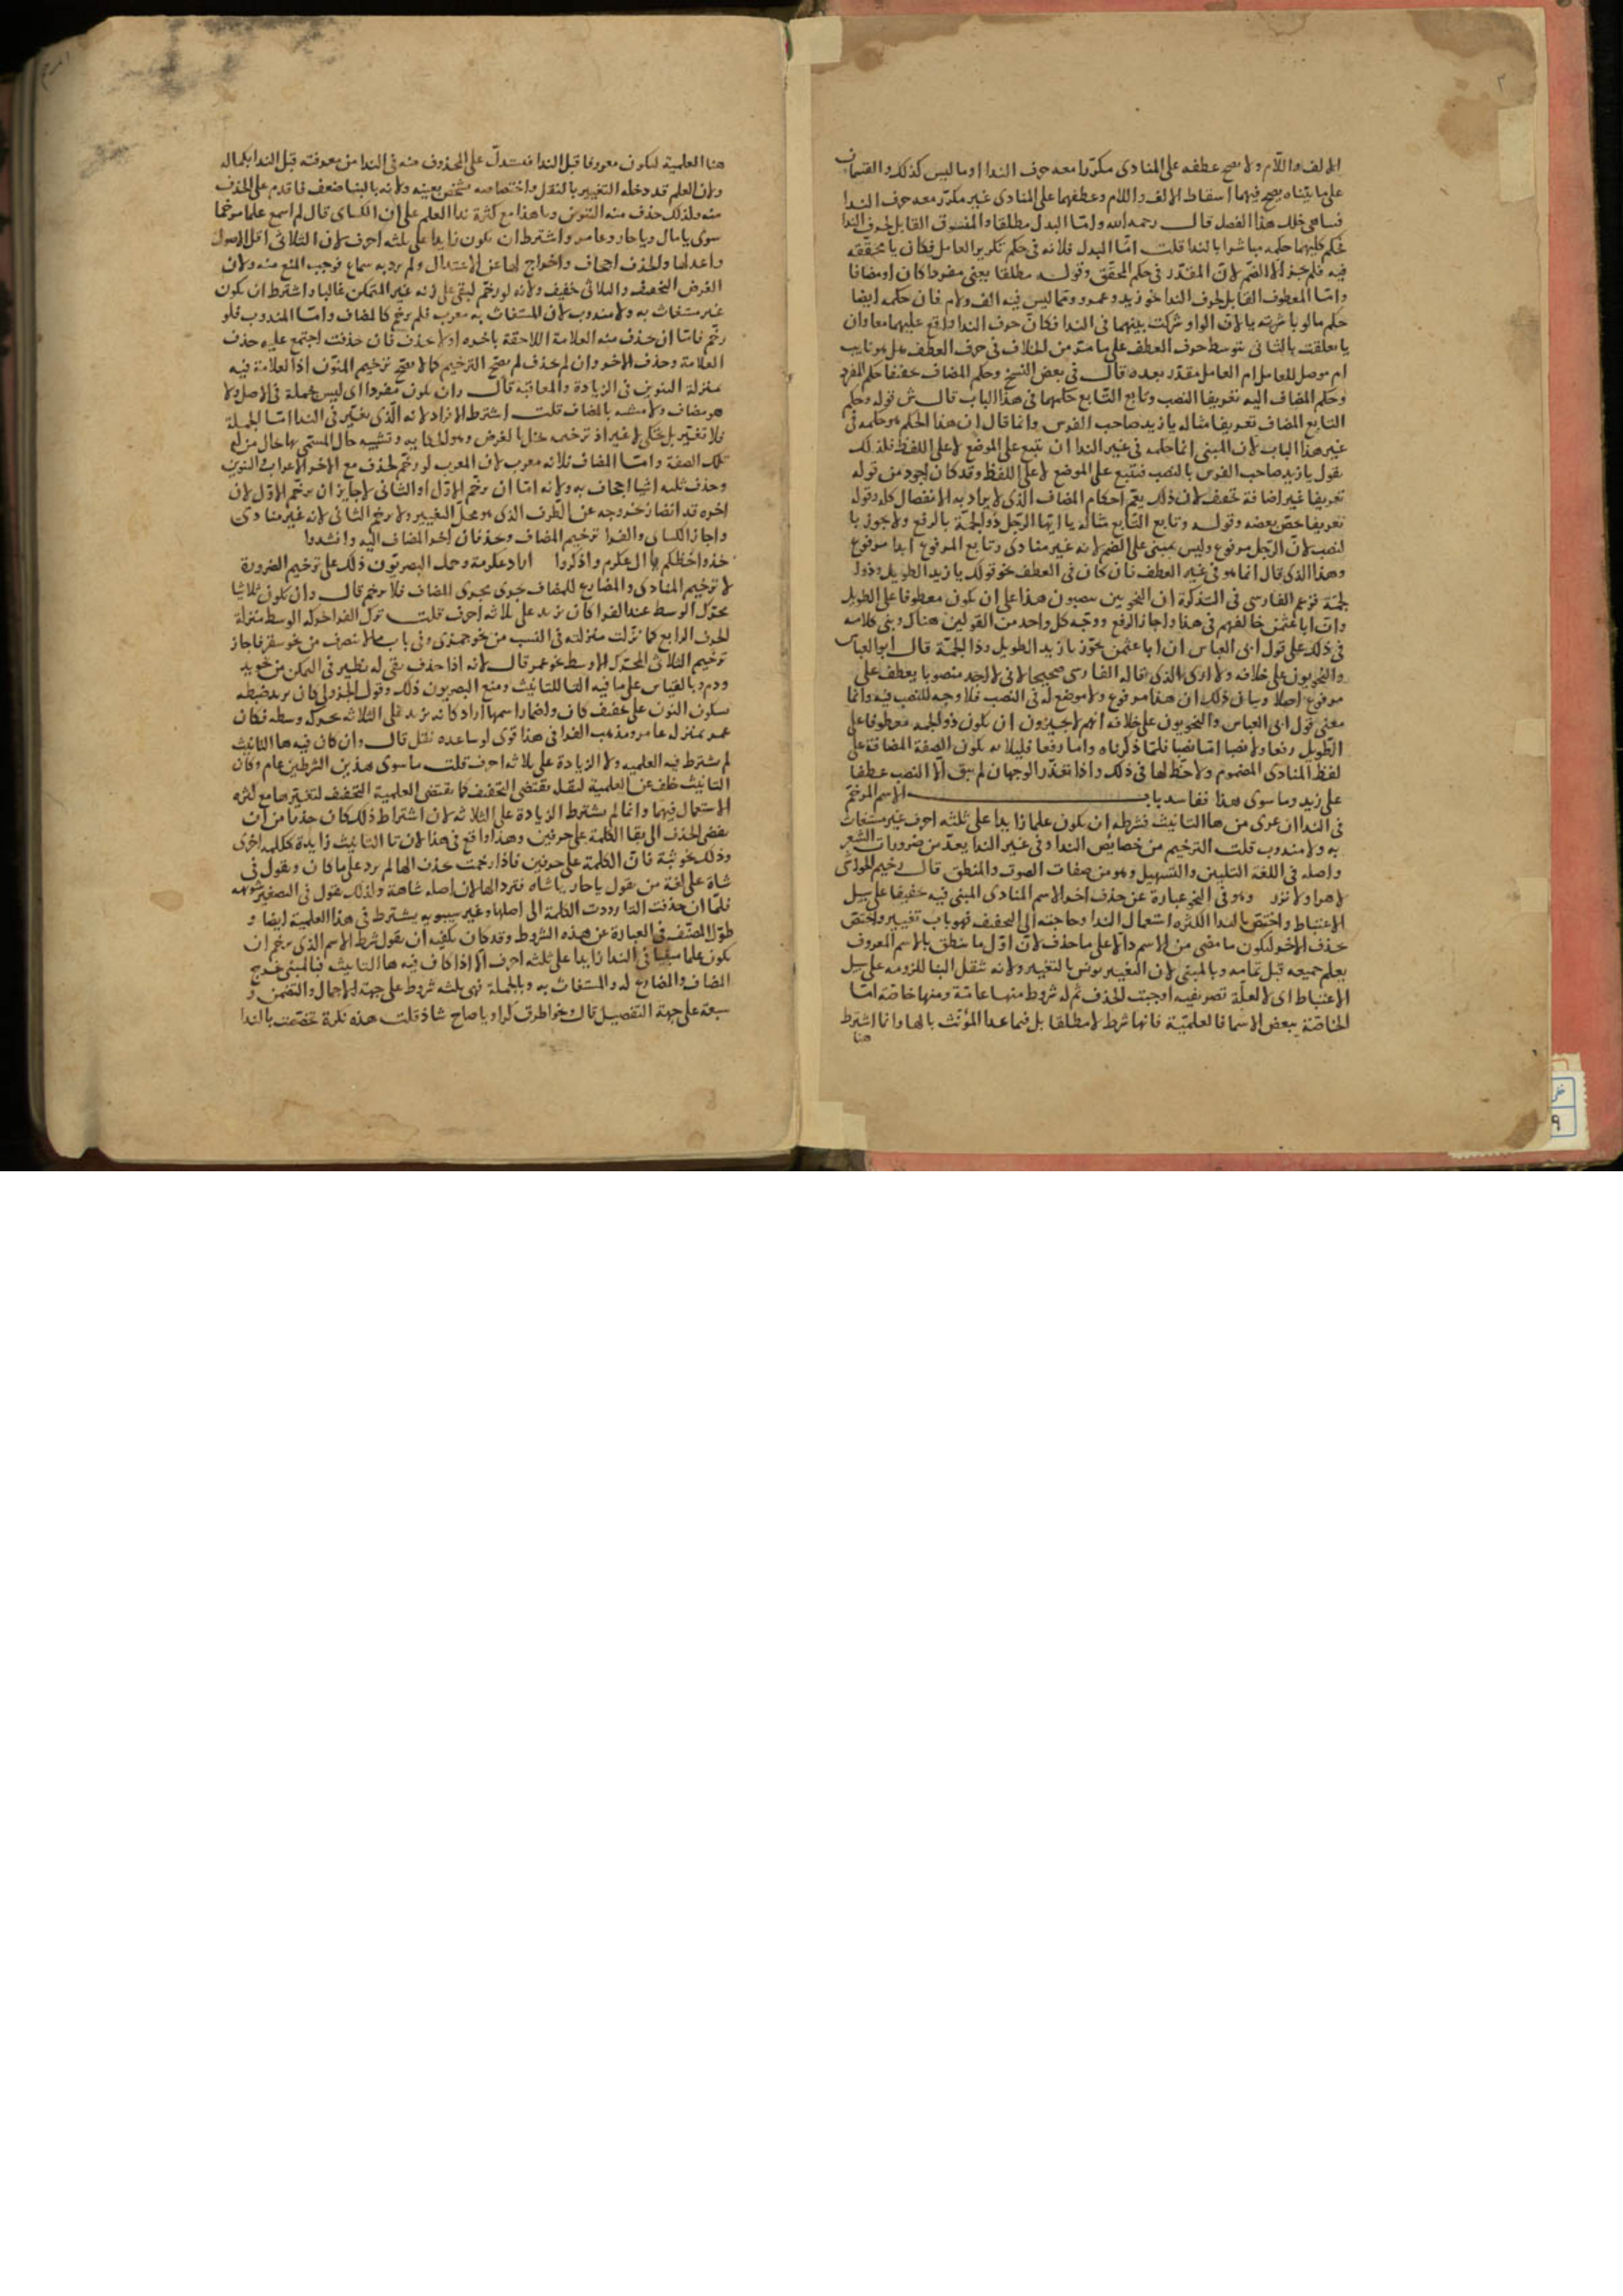 ٢
الالف واللام ولا يصح عطفه على المنادى مكررا معه حرف الندا او ما ليس كذلك والقسمان
على ما بيناه يصح فيهما اسقاط الالف واللام وعطفهما على المنادى غير مكرر معه حرف الندا
هذا الفصل قال رحمه الله واما البدل مطلقا والمنسوق القابل لحرف الندا
فحكم كليهما حكمه مباشرا بالندا قلت امّا البدل فلانه فى حكم تكرير العامل فكان يا محققة
فيه فلم يجز الا الضم لان المقدر فى حكم المحقق وقوله مطلقا يعنى مفردا كان او مضافا
وامّا المعطوف القابل لحرف الندا نحو زيد وعمرو ومما ليس فيه الف ولام فان حكمه ايضا
حكم ما لو باشرته يا لان الواو شركت بينهما فى الندا فكان حرف الندا واقع عليهما معا وان
يا تعلقت بالثانى بتوسط حرف العطف على ما مر من الخلاف فى حرف العطف هل هو نايب
ام موصل للعامل ام العامل مقدر بعده قال فى بعض النسخ وحكم المضاف حكم المفرد
وحكم المضاف اليه تعريفا النصب وتابع التابع حكمهما فى هذا الباب قال ش قوله وحكم
التابع المضاف تعريفا مثاله يا زيد صاحب الفرس وانما قال ان هذا الحكم هو حكمه فى
غير هذا الباب لان المبنى انما حكمه فى غير الندا ان تتبع على الموضع لا على اللفظ فلذلك
تقول يا زيد صاحب الفرس بالنصب فتتبع على الموضع لا على اللفظ وقد كان اجود من قوله
تعريفا غير اضافة تخفيف لان ذلك يعم احكام المضاف الذى لا يراد به الانفصال كله وقوله
تعريفا خص بعضه وقوله وتابع التابع مثاله يا ايها الرجل ذو الجمة بالرفع ولا يجوز با
لنصب لان الرجل مرفوع وليس بمبنى على الضم لانه غير منادى وتابع المرفوع ابدا مرفوع
وهذا الذى قال انما هو فى غير العطف فان كان فى العطف نحو قولك يا زيد الطويل وذو ا
لجمة فزعم الفارسى فى التذكرة ان النحويين ينصبون هذا على ان يكون معطوفا على الطويل
وان ابا عثمن خالفهم فى هذا واجاز الرفع ووجه كل واحد من القولين هناك وبنى كلامه
فى ذلك على قول ابى العباس ان ابا عثمن يجوز يا زيد الطويل وذا الجمة قال ابو العباس
والنحويون على خلافه ولا ارى الذى قاله الفارسى صحيحا لانى لا اجد منصوبا يعطف على
مرفوع اصلا وبيان ذلك ان هذا مرفوع ولا موضع له فى النصب فلا وجه للنصب فيه وانما
معنى قول ابى العباس والنحويون على خلافه انهم لا يجيزون ان يكون ذو الجمه معطوفا على
الطويل رفعا ولا نصبا امّا نصبا فلما ذكرناه واما رفعا فليلا يكون الصفة المضافة على
لفظ المنادى المضموم ولا حظ لها فى ذلك واذا تعذر الوجهان لم يبق الا النصب عطفا
على زيد وما سوى هذا ففاسد باب الاسم المرخم
فى الندا ان عرى من ها التانيث فشرطه ان يكون علما زايدا على ثلثه احرف غير مستغاث
به ولا مندوب قلت الترخيم من خصائص الندا وفى غير الندا يعد من ضرورات الشعر
واصله فى اللغة التليين والتسهيل وهو من صفات الصوت والمنطق قال رخيم الحواشى
لا هرا ولا نزر وهو فى النحو عبارة عن حذف اخر الاسم المنادى المبنى فيه تخفيفا على سبيل
الاعتباط واختص بالندا لكثره استعمال الندا وحاجته الى التخفيف فهو باب تغيير واختص
بحذف الاخر ليكون ما مضى من الاسم دالا على ما حذف لان اول ما ينطق بالاسم المعروف
يعلم جميعه قبل تمامه وبالمبنى لان التغيير يونس بالتغيير ولانه ثقل البنا للزومه على سبيل
الاعتباط اى لا لعلة تصريفيه اوجبت الحذف ثم له شروط منها عامة ومنها خاصة امّا
الخاصة ببعض الاسما فالعلمية فانها شرط لا مطلقا بل فيما عدا المؤنث بالها وانما اشترط
هنا
هنا العلمية ليكون معروفا قبل الندا فيستدل على المحذوف منه فى الندا من معرفته قبل الندا بكماله
ولان العلم قد دخله التغيير بالنقل واختصاصه بشخص بعينه ولانه بالبنا ضعف فاقدم على الحذف
منه ولذلك حذف منه التنوين وما هذا مع كثرة ندا العلم على ان الكساى قال لم اسمع علما مرخما
سوى يا مال ويا حار وعامر واشترط ان يكون زايدا على ثلثه احرف لان الثلاثى اقل الاصول
واعدلها والحذف اجحاف واخراج لها عن الاعتدال ولم يرد به سماع فوجب المنع منه ولان
الغرض التخفيف والثلاثى خفيف ولانه لو رخم لبقى على زنه غير المتمكن غالبا واشترط ان يكون
غير مستغاث به ولا مندوب لان المستغاث به معرب فلم يرخم كالمضاف وامّا المندوب فلو
رخم فامّا ان حذف منه العلامة اللاحقة باخره او لا حذف فان حذفت اجتمع عليه حذف
العلامة وحذف الاخر وان لم حذف لم يصح الترخيم كما لا يصح ترخيم المنون اذ العلامة فيه
بمنزلة التنوين فى الزيادة والمعاقبة قال وان يكون مفردا اى ليس بجملة فى الاصل ولا
هو مضاف ولا مشبه بالمضاف قلت اشترط الافراد لانه الذى يتغير فى الندا امّا الجملة
فلا تتغير بل تحكى لا غير اذ ترخيمها مخل بالغرض وهو الحكايه وتشبيه حال المسمى بها بحال من له
تلك الصفة وامّا المضاف فلانه معرب لان المعرب لو رخم لحذف مع الاخر الاعراب والتنوين
وحذف ثلثه اشيا اجحاف به ولانه امّا ان يرخم الاول او الثانى لا جايز ان يرخم الاول لان
اخره قد انضاف عن الطرف الذى هو محل التغيير ولا يرخم الثانى لانه غير منادى
واجاز الكساى والفرا ترخيم المضاف وحذفان اخر المضاف اليه وانشدوا
خذوا حظكم يا آل عكرم واذكروا اراد عكرمة وحمله البصريون ذلك على ترخيم الضرورة
لا ترخيم المنادى والمضارع للمضاف جرى مجرى المضاف فلا يرخم قال وان يكون ثلاثيا
محرك الوسط عند الفرا كان يزيد على ثلاثه احرف قلت نزل الفرا حركه الوسط منزلة
الحرف الرابع كما نزلت منزلته فى النسب من نحو جمزى وفى باب ما لا ينصرف من نحو سقر فاجاز
ترخيم الثلاثى المحرك الاوسط نحو عمر قال لانه اذا حذف بقى له نظير فى المتمكن من نحو يد
ودم وبالقياس على ما فيه التا للتانيث ومنع البصريون ذلك وقول الجزولى كان يزيد ضبطه
بسكون النون على تخفيف كان واضمار اسمها اراد كانه يزيد على الثلاثه بحركه وسطه فكان
عمر بمنزله عامر ومذهب الفرا فى هذا قوى لو ساعده نقل قال وان كان فيه ها التانيث
لم يشترط فيه العلميه ولا الزيادة على ثلاثه احرف قلت ما سوى هذين الشرطين عام وكان
التانيث خلف عن العلمية لثقله يقتضى التخفيف كما يقتضى العلمية التخفيف لتغيرها مع كثره
الاستعمال فيها وانما لم يشترط الزيادة على الثلاثه لان اشتراط ذلك كان حذرا من ان
يفضى الحذف الى بقا الكلمة على حرفين وهذا واقع فى هذا لان تا التانيث زايدة ككلمه اخرى
وذلك نحو ثبة فان الكلمة على حرفين فاذا رخمت بحذف الها لم يرد على ما كان وتقول فى
شاة على لغة من يقول يا حار يا شاه فترد الها لان اصله شاهة ولذلك تقول فى التصغير شويهه
فلما ان حذفت التا رددت الكلمة الى اصلها وغير سيبويه يشترط فى هذا العلمية ايضا و
طول المصنف فى العبارة عن هذه الشروط وقد كان يكفيه ان يقول شرط الاسم الذى يرخم ان
يكون علما مبنيا فى الندا زايدا على ثلثه احرف الا اذا كان فيه ها التانيث فبالمبنى خرج
المضاف والمضارع له والمستغاث به وبالجملة فهى ثلثه شروط على جهة الاجمال والتضمن و
سبعة على جهة التفصيل قال ونحو اطرق كرا ويا صاح شاذ قلت هذه نكرة تخصصت بالندا